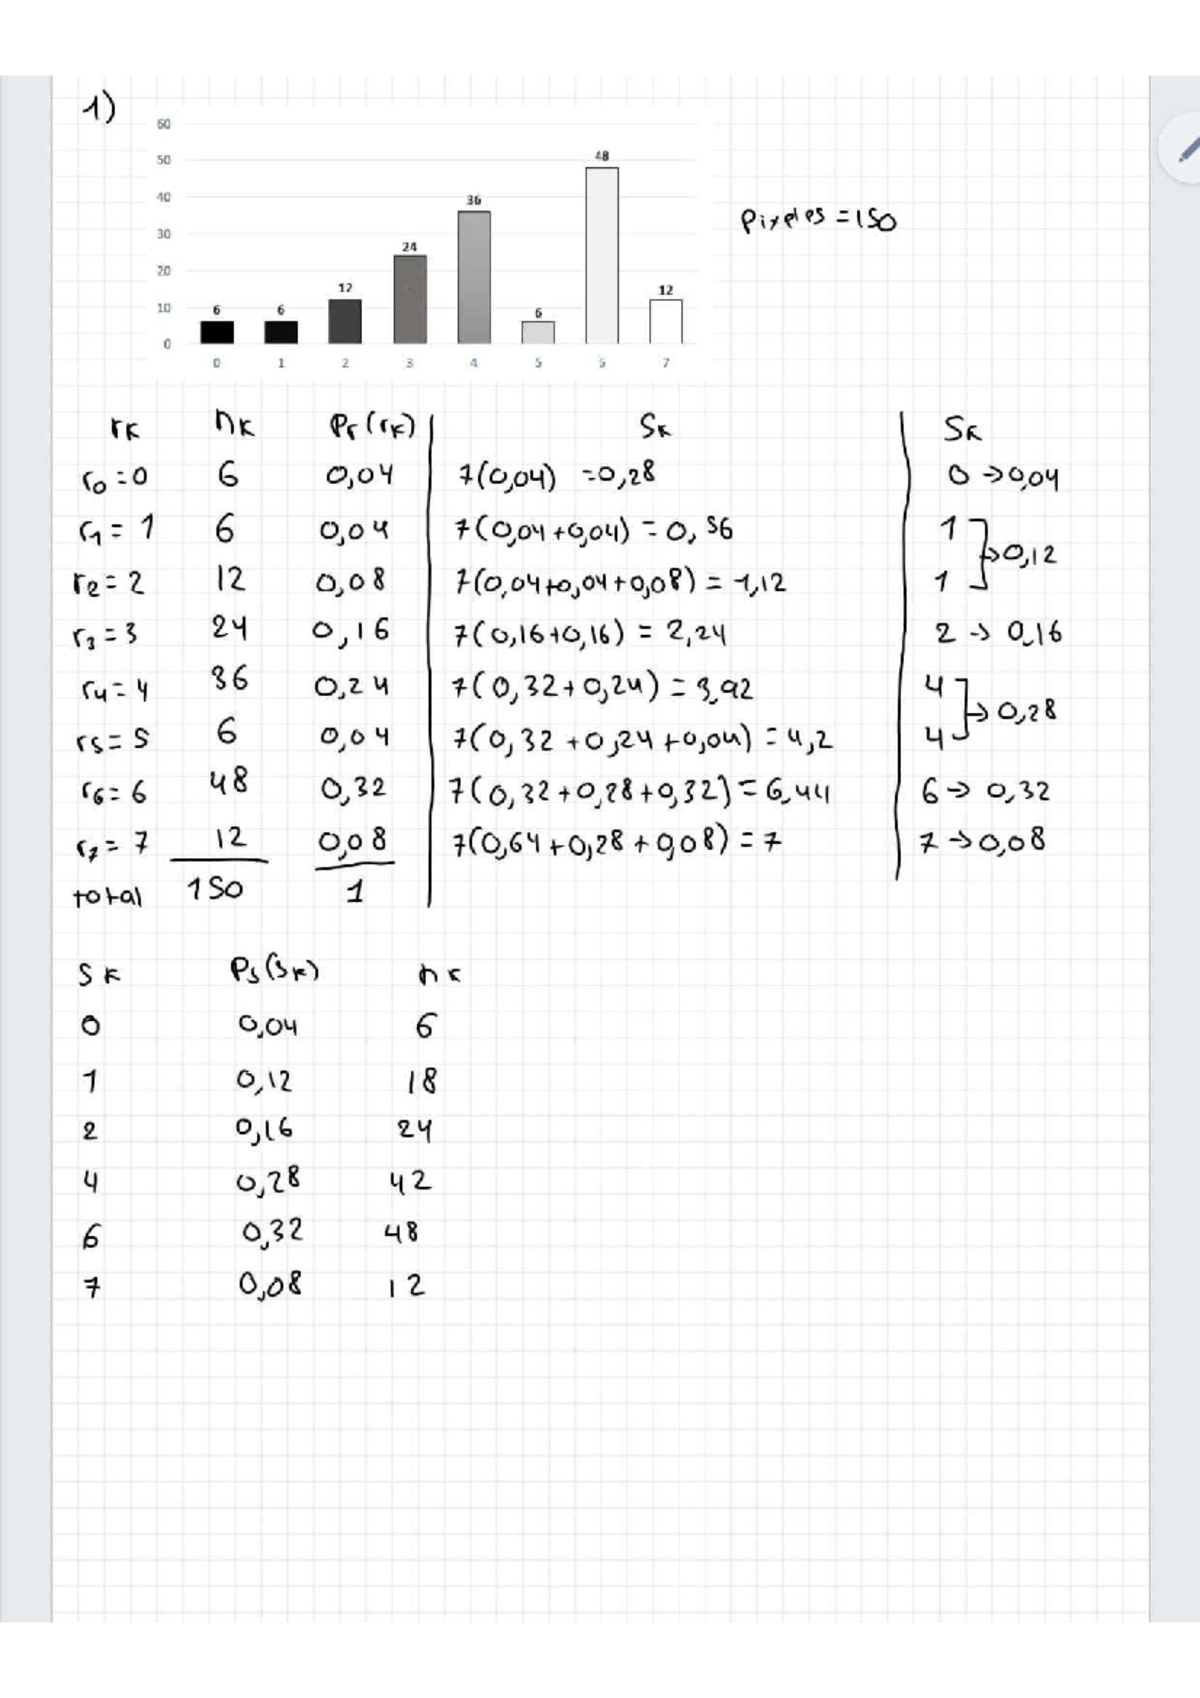 1)
60
50
40
30
20
10
0
6 6 12 24 36 6 48 12
0 1 2 3 4 5 6 7
Pixeles = 150
rk nk Pr(rk) Sk Sk
r0 = 0 6 0,04 7(0,04) = 0,28 0 → 0,04
r1 = 1 6 0,04 7(0,04+0,04) = 0,56 1
→ 0,12
r2 = 2 12 0,08 7(0,04+0,04+0,08) = 1,12 1
r3 = 3 24 0,16 7(0,16+0,16) = 2,24 2 → 0,16
r4 = 4 36 0,24 7(0,32+0,24) = 3,92 4
→ 0,28
r5 = 5 6 0,04 7(0,32+0,24+0,04) = 4,2 4
r6 = 6 48 0,32 7(0,32+0,28+0,32) = 6,44 6 → 0,32
r7 = 7 12 0,08 7(0,64+0,28+0,08) = 7 7 → 0,08
total 150 1
Sk Ps(Sk) nk
0 0,04 6
1 0,12 18
2 0,16 24
4 0,28 42
6 0,32 48
7 0,08 12